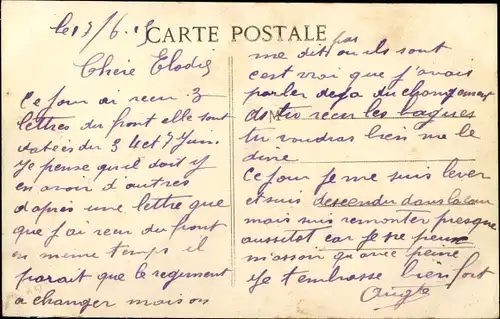 le 17/6.15
CARTE POSTALE
Chère Elodie
Ce jour ai recu 3
lettres du front elle sont
datées du 3 4 et 7 Juin.
Je pense qu'il doit y
en avoir d'autres
d'après une lettre que
que j'ai recu du front
en meme temps il
parait que le regiment
a changer mais on
me dit pas ou ils sont
c'est vrai que j'avais
parler deja du changement
As tu recu les bagues
tu voudras bien me le
dire
Ce jour je me suis lever
et suis descendu dans la cour
mais suis remonter presque
aussitot car je ne peux
m'assoir qu'avec peine
Je t'embrasse bien fort